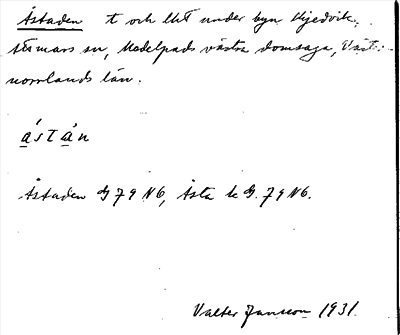 Åstaden t och lht under byn Vigedvik,
Stimars sn, Medelpads västra domsaga, Väst-
norrlands län.
åstån
Åstaden G 79 N6, Åsta be G. 79 N6.
Valter Jansson 1931.